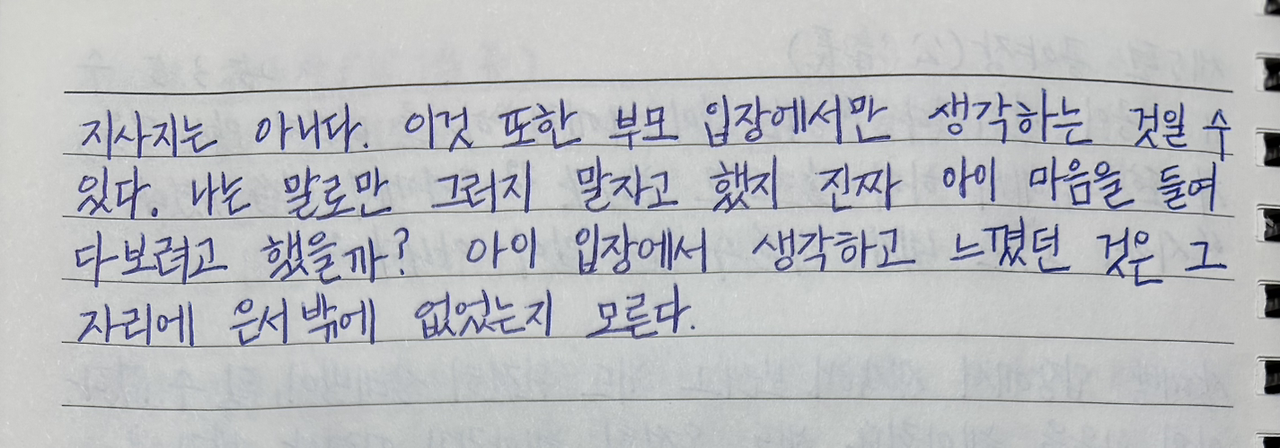 지사지는 아니다. 이것 또한 부모 입장에서만 생각하는 것일 수
있다. 나는 말로만 그러지 말자고 했지 진짜 아이 마음을 들여
다보려고 했을까? 아이 입장에서 생각하고 느꼈던 것은 그
자리에 은서밖에 없었는지 모른다.